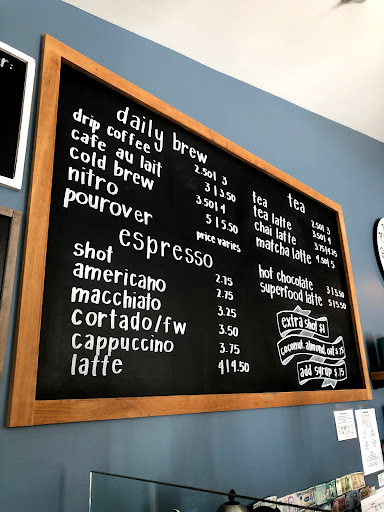 r:
daily brew
drip coffee 2.50| 3
cafe au lait 3|3.50
cold brew 3.50|4
nitro 5|5.50
pourover price varies
espresso
shot 2.75
americano 2.75
macchiato 3.25
cortado/fw 3.50
cappuccino 3.75
latte 4|4.50
tea
tea 2.50|3
tea latte 3.50|4
chai latte 3.75|4.75
matcha latte 4.50|5
hot chocolate 3|3.50
superfood latte 5|5.50
extra shot $1
coconut, almond, oat $.75
add syrup $.75